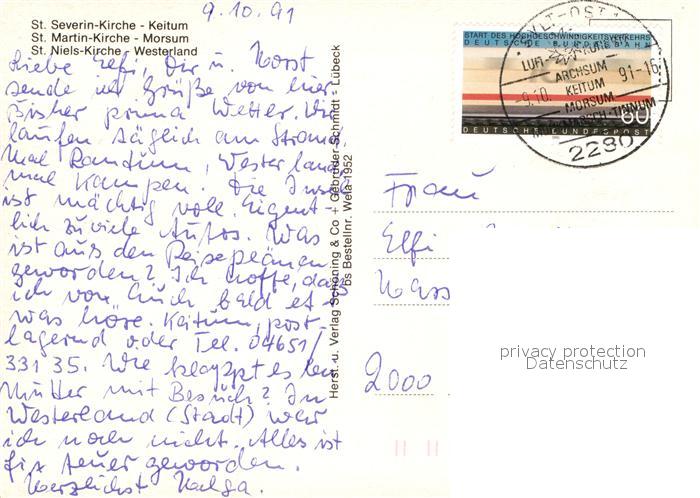 9.10.91
St. Severin-Kirche - Keitum
St. Martin-Kirche - Morsum
St. Niels-Kirche - Westerland
Liebe Elfi, Dir u. Horst
sende ich Grüße von hier.
Bisher prima Wetter. Wir
laufen täglich am Strand
mal Rantum, Westerland
mal Kampen. Die Insel
ist mächtig voll. Eigent-
lich zu viele Autos. Was
ist aus den Reiseplänen
geworden? Ich hoffe, daß
ich von Euch bald et-
was höre. Keitum, post-
lagernd oder Tel. 04651/
331 35. Wie klappt es
Mutter mit Besuch? In
Westerland (Stadt) war
ich noch nicht. Alles ist
fix teuer geworden.
Herzlichst Helga.
Herst. u. Verlag Schöning & Co + Gebrüder Schmidt - Lübeck
bs Bestellnr. Weta 1952
START DES HOCHGESCHWINDIGKEITSVERKEHRS
DEUTSCHE BUNDESBAHN
60
DEUTSCHE BUNDESPOST
SYLT-OST
ARCHSUM
9.10. KEITUM 91-16
MORSUM
2280
Frau
Elfi
2000
privacy protection
Datenschutz